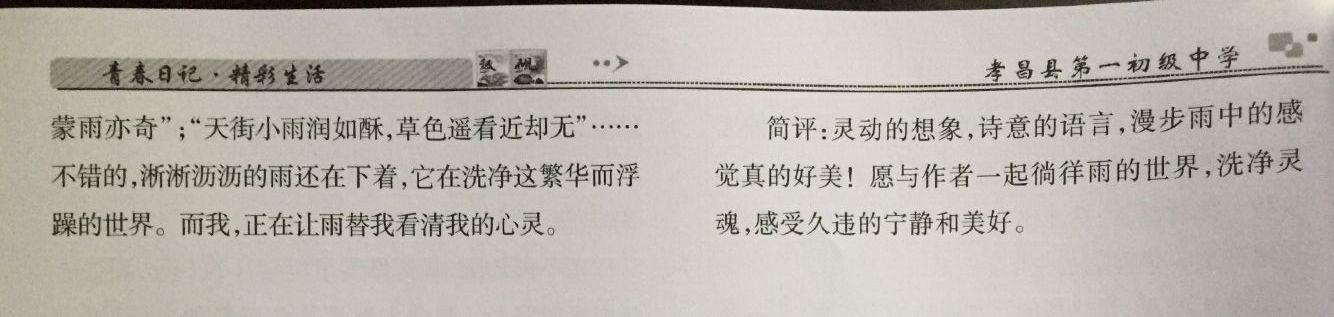 青春日记·精彩生活
孝昌县第一初级中学
蒙雨亦奇”;“天街小雨润如酥,草色遥看近却无”……
不错的,淅淅沥沥的雨还在下着,它在洗净这繁华而浮
躁的世界。而我,正在让雨替我看清我的心灵。
简评:灵动的想象,诗意的语言,漫步雨中的感
觉真的好美！愿与作者一起徜徉雨的世界,洗净灵
魂,感受久违的宁静和美好。